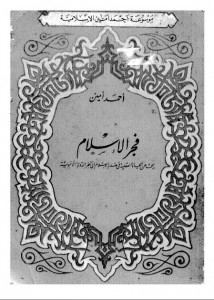 موسوعة أحمد أمين الإسلامية
أحمد أمين
فجر الإسلام
يبحث عن الحياة العقلية في صدر الإسلام إلى آخر الدولة الأموية